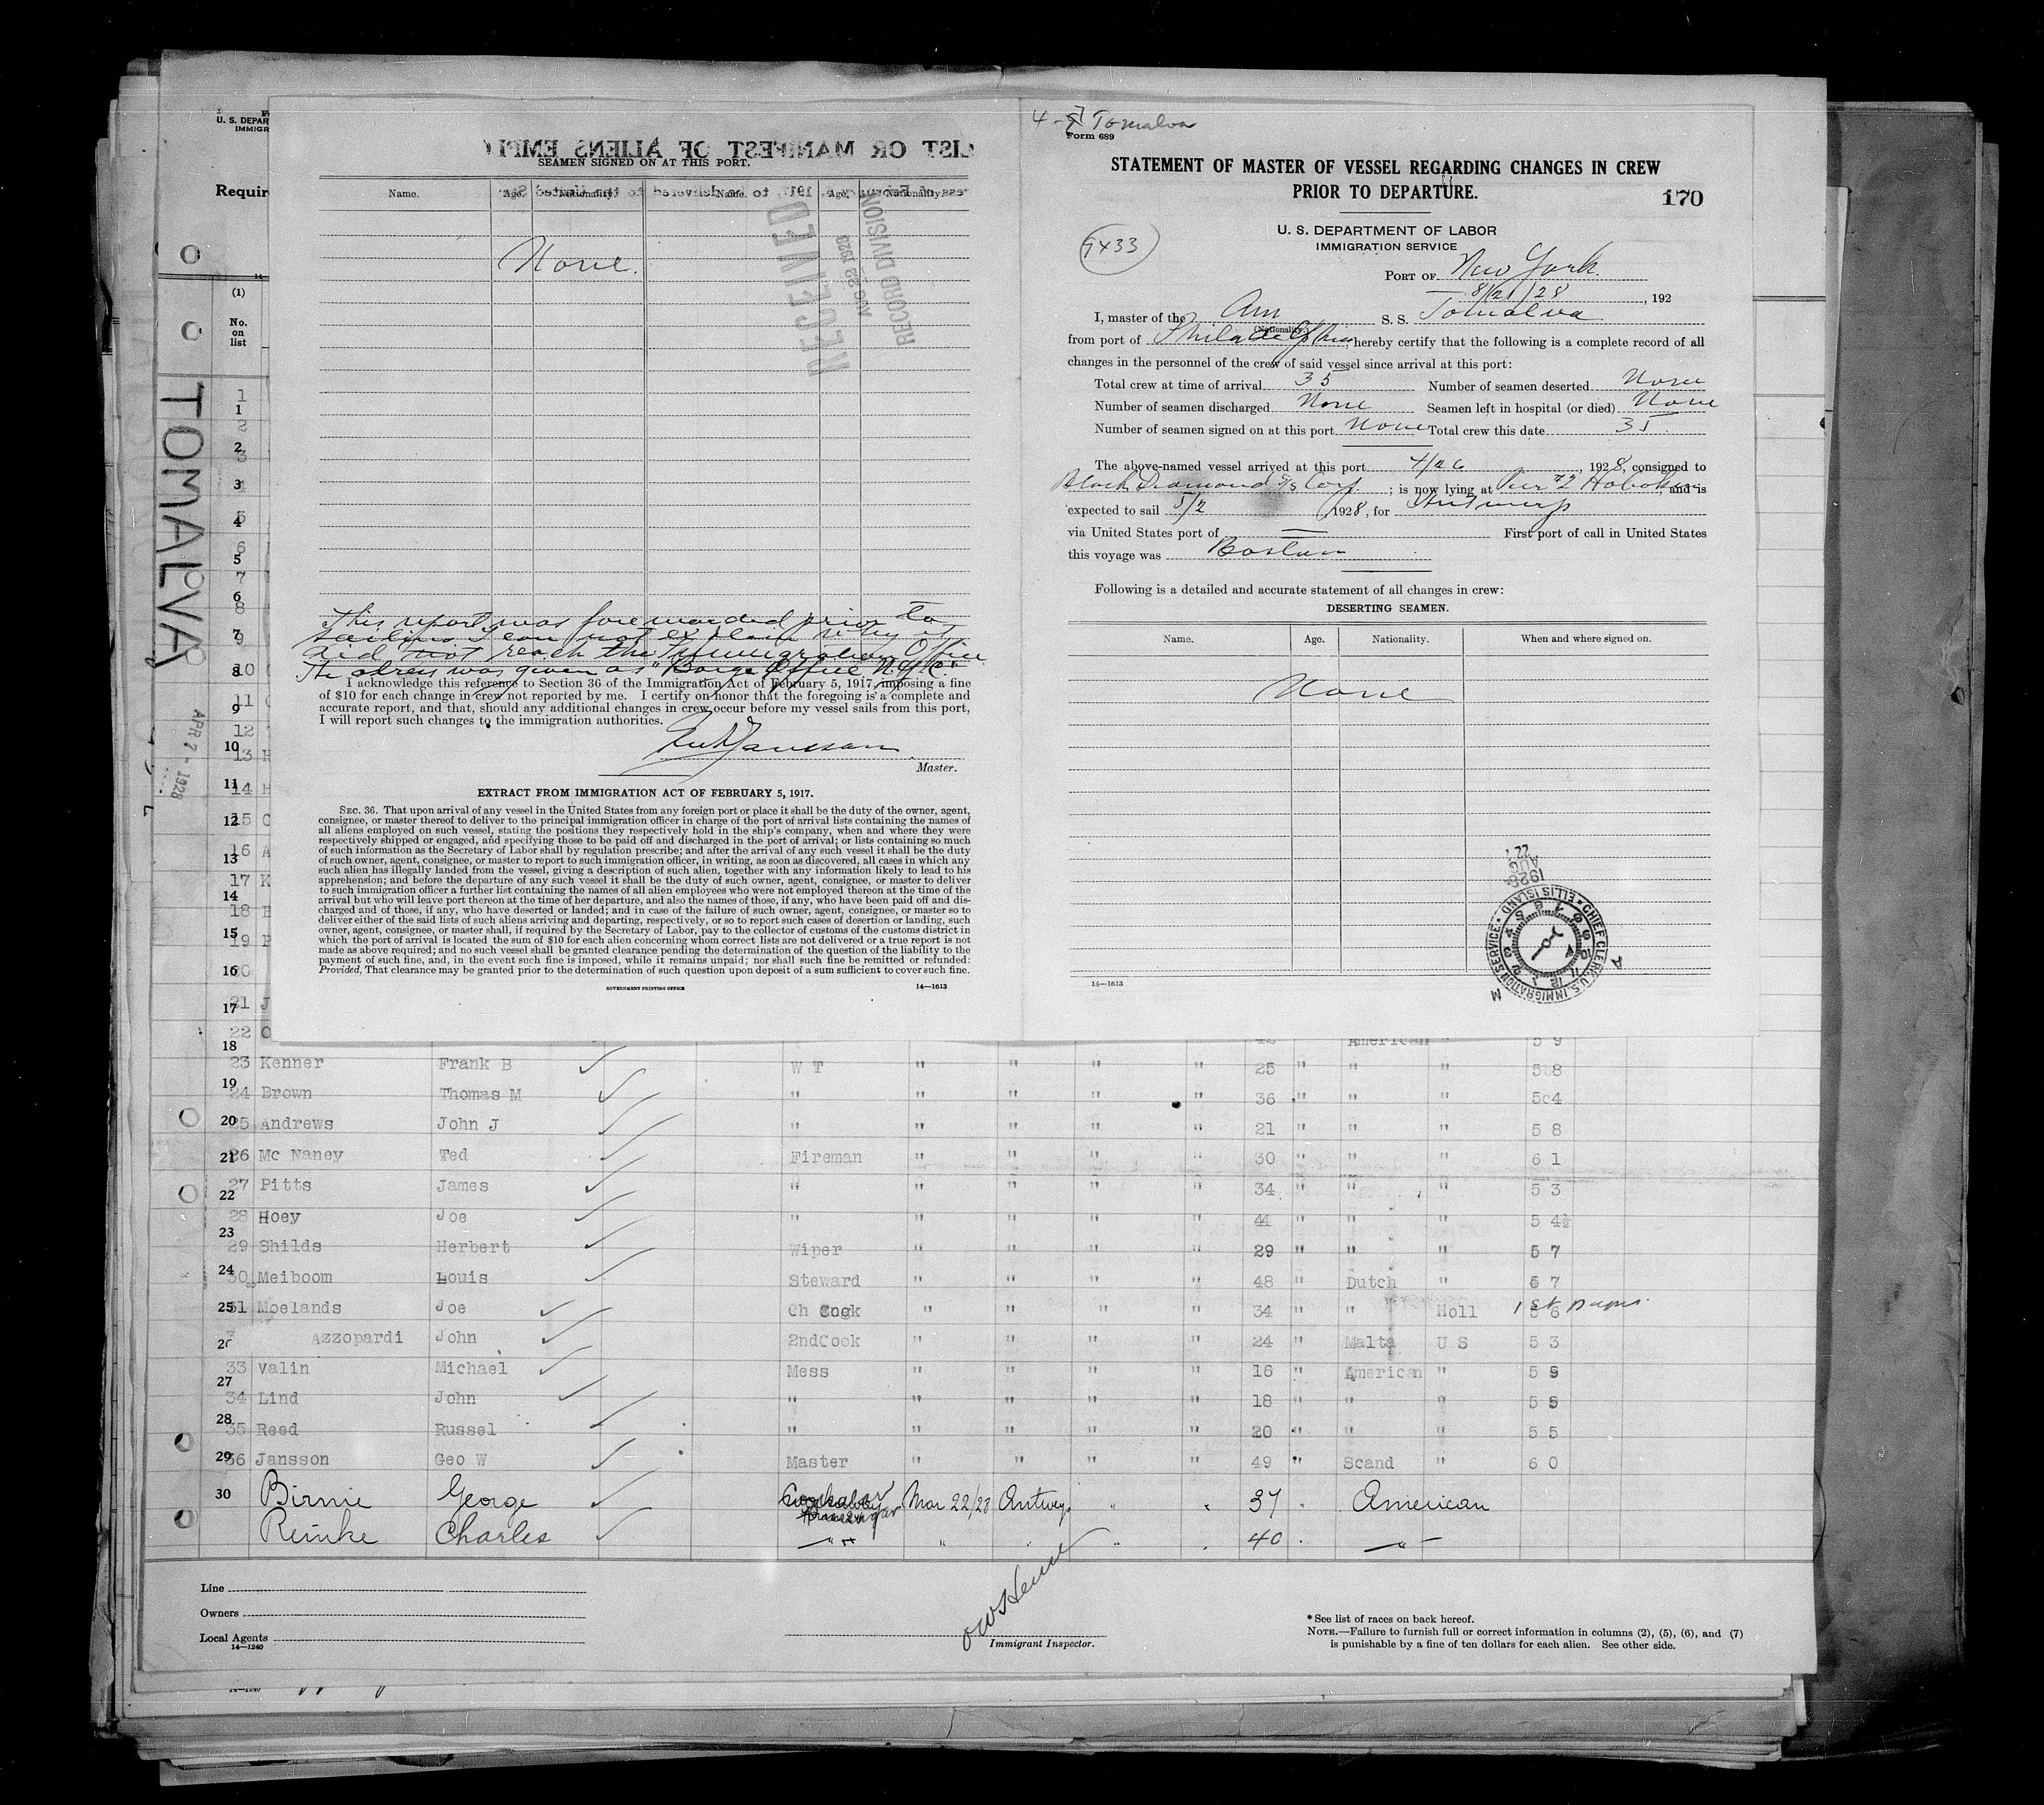 4-7 Tomalva
Form 689
STATEMENT OF MASTER OF VESSEL REGARDING CHANGES IN CREW
PRIOR TO DEPARTURE.
170
U. S. DEPARTMENT OF LABOR
IMMIGRATION SERVICE
PORT OF New York.
8/21/28, 192
I, master of the Am S. S. Tomalva
(Nationality.)
from port of Philadelphia hereby certify that the following is a complete record of all
changes in the personnel of the crew of said vessel since arrival at this port:
Total crew at time of arrival 35 Number of seamen deserted None
Number of seamen discharged None Seamen left in hospital (or died) None
Number of seamen signed on at this port None Total crew this date 35
The above-named vessel arrived at this port 4/26, 1928, consigned to
Black Diamond S/S Corp.; is now lying at Pier #2 Hoboken, and is
expected to sail 5/2, 1928, for Antwerp
via United States port of — First port of call in United States
this voyage was Boston
Following is a detailed and accurate statement of all changes in crew:
DESERTING SEAMEN.
Name. Age. Nationality. When and where signed on.
None
AUG 22 1928
CHIEF CLERK U.S. IMMIGRATION SERVICE • ELLIS ISLAND •
14—1613
LIST OR MANIFEST OF ALIENS EMPL
SEAMEN SIGNED ON AT THIS PORT.
Name. Age. Nationality. Name. Age. Nationality.
None.
RECEIVED
AUG 22 1928
RECORD DIVISION
This report was forewarded prior to
sailing I can not explain why it
did not reach the Immigration Office
The adress was given as "Barge Office N.Y.C."
I acknowledge this reference to Section 36 of the Immigration Act of February 5, 1917, imposing a fine
of $10 for each change in crew not reported by me. I certify on honor that the foregoing is a complete and
accurate report, and that, should any additional changes in crew occur before my vessel sails from this port,
I will report such changes to the immigration authorities.
Jansson
Master.
EXTRACT FROM IMMIGRATION ACT OF FEBRUARY 5, 1917.
SEC. 36. That upon arrival of any vessel in the United States from any foreign port or place it shall be the duty of the owner, agent,
consignee, or master thereof to deliver to the principal immigration officer in charge of the port of arrival lists containing the names of
all aliens employed on such vessel, stating the positions they respectively hold in the ship's company, when and where they were
respectively shipped or engaged, and specifying those to be paid off and discharged in the port of arrival; or lists containing so much
of such information as the Secretary of Labor shall by regulation prescribe; and after the arrival of any such vessel it shall be the duty
of such owner, agent, consignee, or master to report to such immigration officer, in writing, as soon as discovered, all cases in which any
such alien has illegally landed from the vessel, giving a description of such alien, together with any information likely to lead to his
apprehension; and before the departure of any such vessel it shall be the duty of such owner, agent, consignee, or master to deliver
to such immigration officer a further list containing the names of all alien employees who were not employed thereon at the time of the
arrival but who will leave port thereon at the time of her departure, and also the names of those, if any, who have been paid off and dis-
charged and of those, if any, who have deserted or landed; and in case of the failure of such owner, agent, consignee, or master so to
deliver either of the said lists of such aliens arriving and departing, respectively, or so to report such cases of desertion or landing, such
owner, agent, consignee, or master shall, if required by the Secretary of Labor, pay to the collector of customs of the customs district in
which the port of arrival is located the sum of $10 for each alien concerning whom correct lists are not delivered or a true report is not
made as above required; and no such vessel shall be granted clearance pending the determination of the question of the liability to the
payment of such fine, and, in the event such fine is imposed, while it remains unpaid; nor shall such fine be remitted or refunded:
Provided, That clearance may be granted prior to the determination of such question upon deposit of a sum sufficient to cover such fine.
GOVERNMENT PRINTING OFFICE
14—1613
U. S. DEPAR
IMMIGR
Requir
(1)
No.
on
list
TOMALVA
APR 7 - 1928
42 American 5 9
23 Kenner Frank B W T " " " " 25 " " " 5 8
24 Brown Thomas M " " " " " 36 " " " 5 4
25 Andrews John J " " " " " 21 " " " 5 8
26 Mc Naney Ted Fireman " " " " 30 " " " 6 1
27 Pitts James " " " " " 34 " " " 5 3
28 Hoey Joe " " " " " 44 " " " 5 4½
29 Shilds Herbert Wiper " " " " 29 " " " 5 7
30 Meiboom Louis Steward " " " " 48 " Dutch " 5 7
31 Moelands Joe Ch Cook " " " " 34 " " Holl 5 6 1st papers
Azzopardi John 2ndCook " " " " 24 " Malta U S 5 3
33 Valin Michael Mess " " " " 16 " American " 5 9
34 Lind John " " " " " 18 " " " 5 8
35 Reed Russel " " " " " 20 " " " 5 5
36 Jansson Geo W Master " " " " 49 " Scand " 6 0
30 Birnie George Workaway Mar 22/28 Antwerp " " 37 " American
Reinke Charles " " " " " 40 " "
Line
Owners
Local Agents
14—1240
Immigrant Inspector.
* See list of races on back hereof.
NOTE.—Failure to furnish full or correct information in columns (2), (5), (6), and (7)
is punishable by a fine of ten dollars for each alien. See other side.